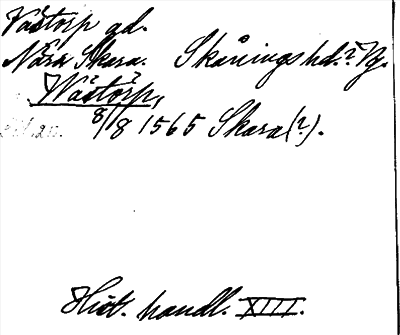 Västorp gd.
Nära Skara. Skånings hd.? Vg.
Wästörp,
8/8 1565 Skara(?).
Hist. handl. XIII.